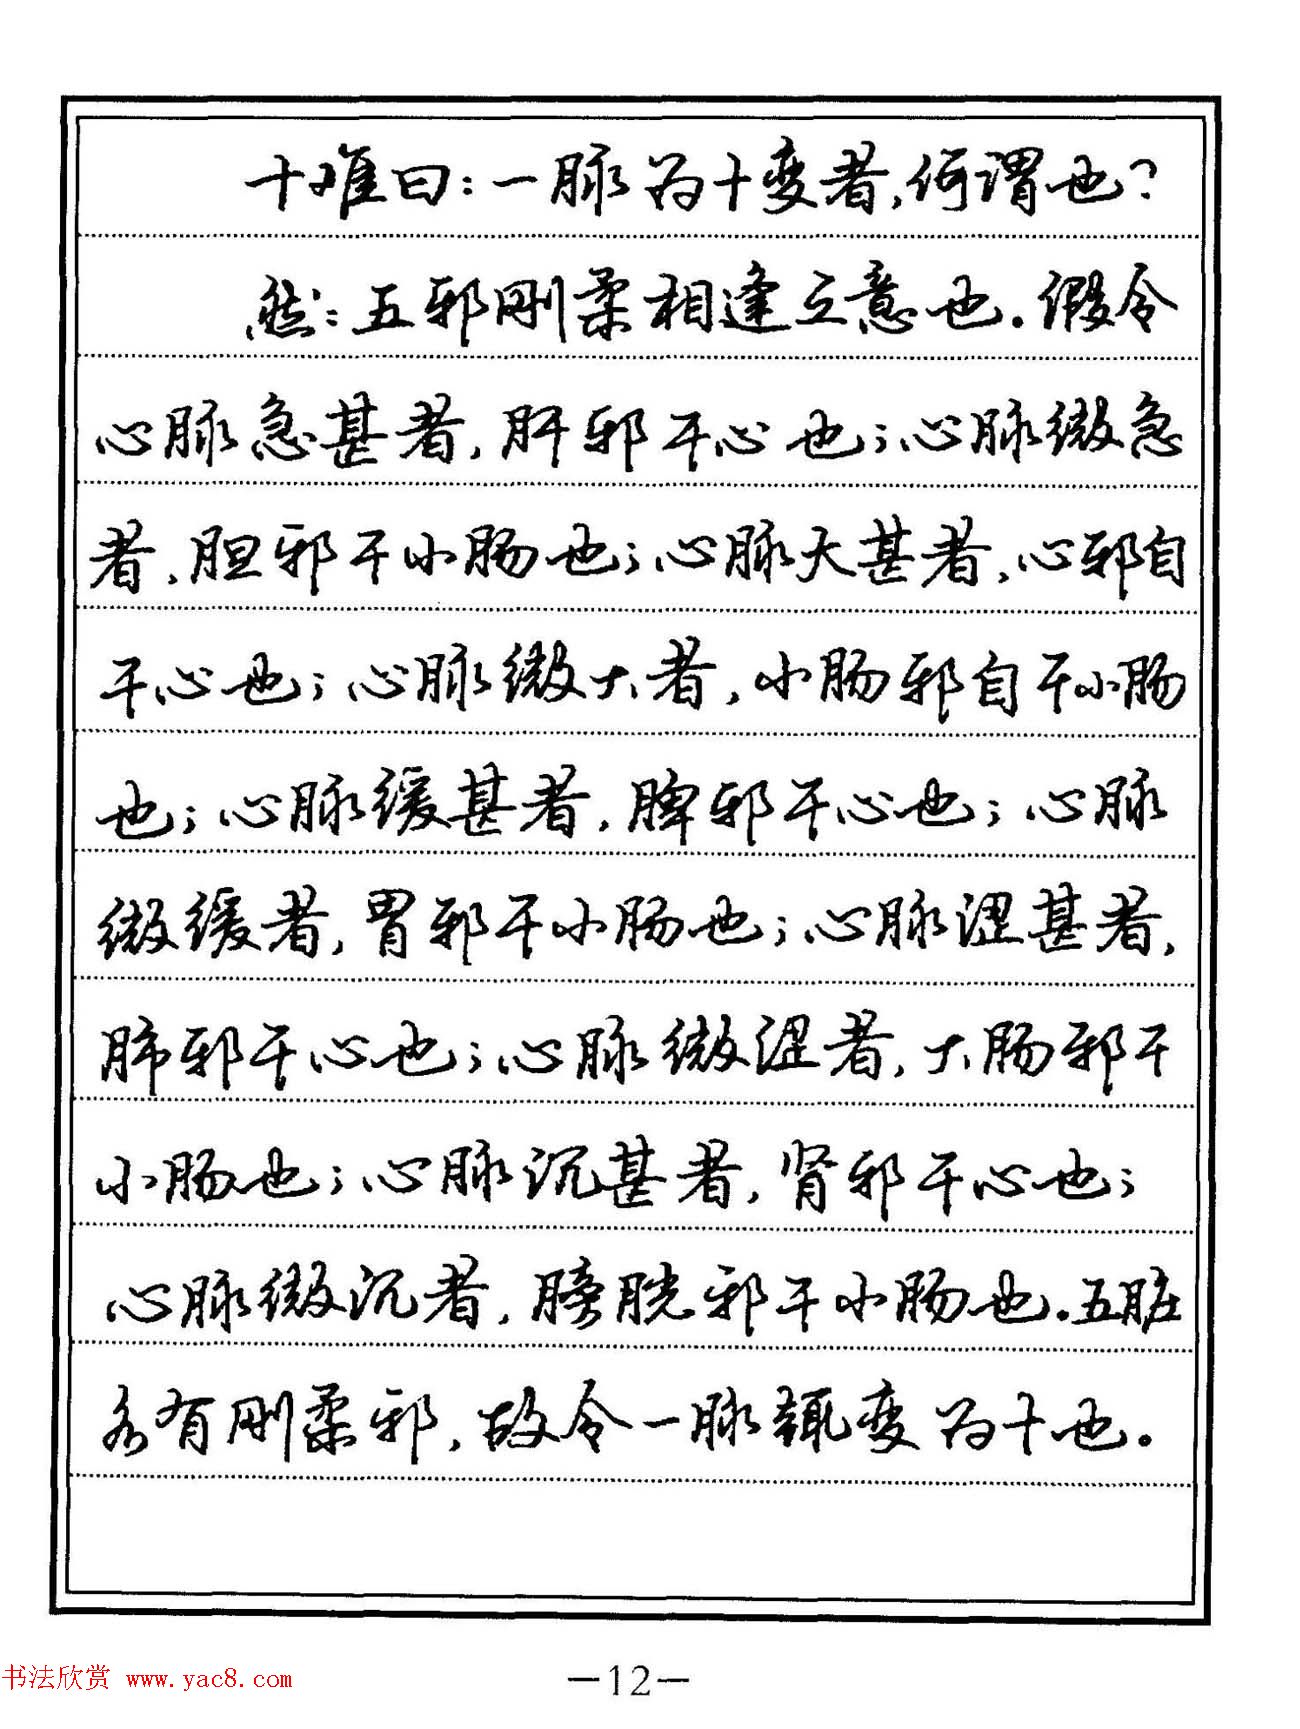 十难曰：一脉为十变者，何谓也？
然：五邪刚柔相逢之意也。假令
心脉急甚者，肝邪干心也；心脉微急
者，胆邪干小肠也；心脉大甚者，心邪自
干心也；心脉微大者，小肠邪自干小肠
也；心脉缓甚者，脾邪干心也；心脉
微缓者，胃邪干小肠也；心脉涩甚者，
肺邪干心也；心脉微涩者，大肠邪干
小肠也；心脉沉甚者，肾邪干心也；
心脉微沉者，膀胱邪干小肠也。五脏
各有刚柔邪，故令一脉辄变为十也。
书法欣赏 www.yac8.com
—12—